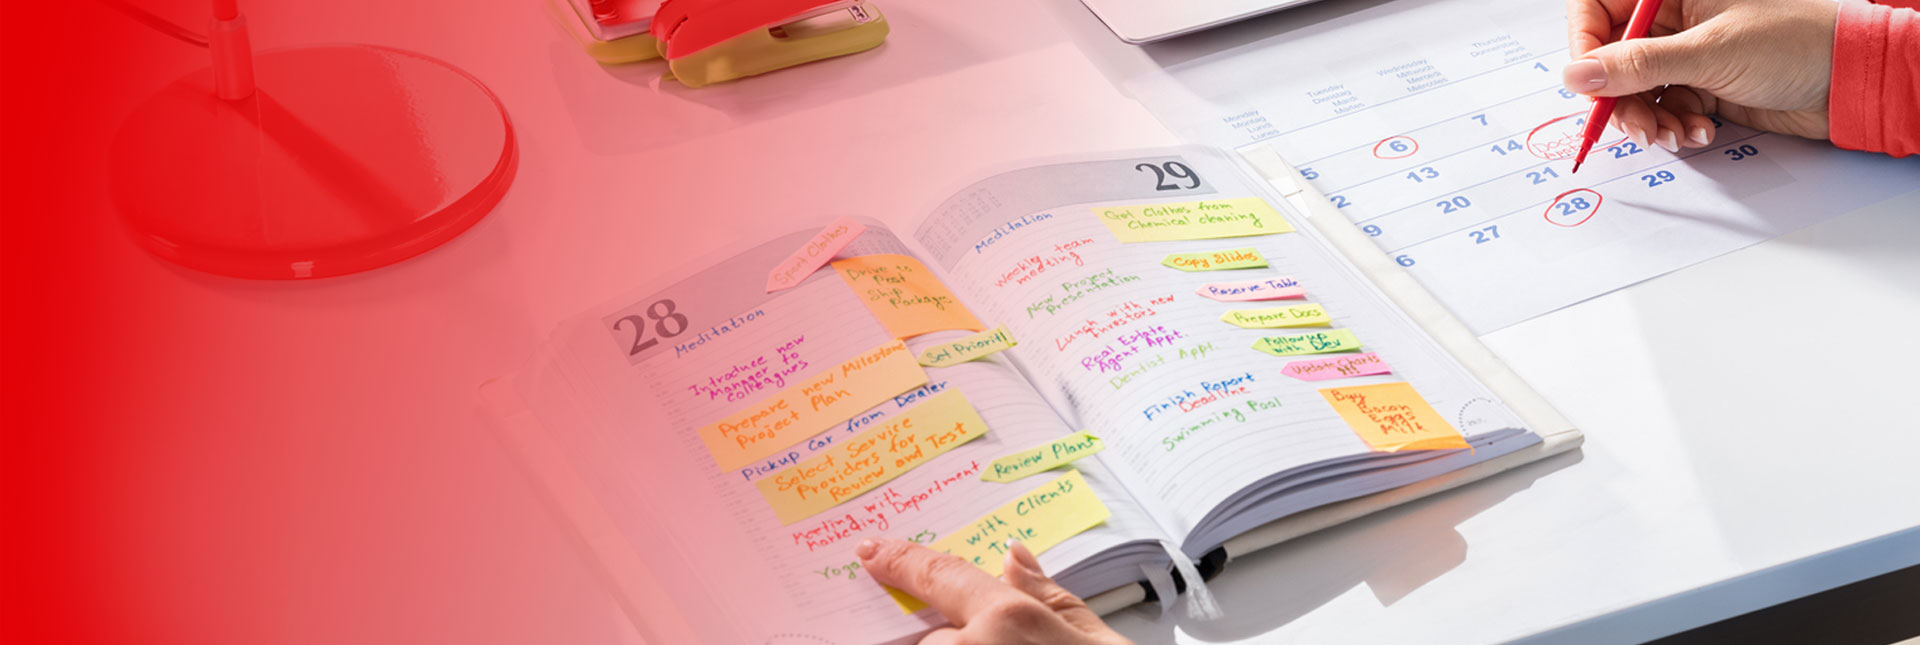 28
Meditation
Sport Clothes
Drive to
Post
Ship
Packages
Introduce new
Manager to
colleagues
Set Priority
Prepare new Milestone
Project Plan
Pickup Car from Dealer
Select Service
Providers for
Review and Test
Review Plans
Meeting with
Marketing Department
Yoga
with Clients
29
Meditation
Get Clothes from
Chemical cleaning
Weekly team
meeting
Copy Slides
New Project
Presentation
Reserve Table
Lunch with new
Investors
Prepare Docs
Real Estate
Agent Appt.
Follow up
with Dev
Dentist Appt.
Update Charts
Finish Report
Deadline
Buy
Bacon
Eggs
Milk
Swimming Pool
Monday
Montag
Lundi
Lunes
Tuesday
Dienstag
Mardi
Martes
Wednesday
Mittwoch
Mercredi
Miércoles
Thursday
Donnerstag
Jeudi
Jueves
1
6 7 8
5
13 14
Doctor
Appt
20 21 22
27 28 29 30